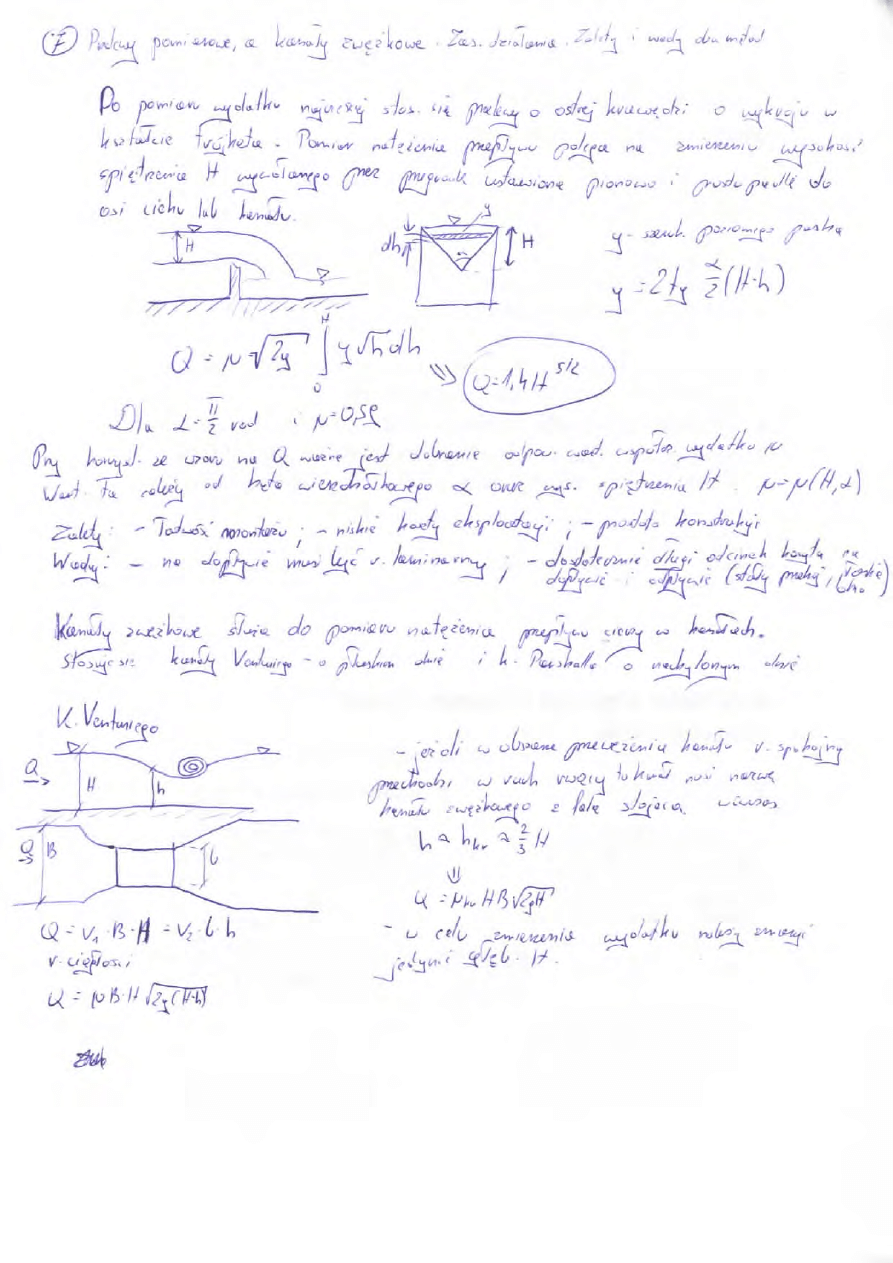 7 Przelewy pomiarowe, a kanały zwężkowe. Zas. działania. Zalety i wady obu metod
Do pomiaru wydatku najczęściej stos. się przelewy o ostrej krawędzi o wykroju w
kształcie trójkąta. Pomiar natężenia przepływu polega na zmierzeniu wysokości
spiętrzenia H wywołanego przez przegrodę ustawioną pionowo i prostopadle do
osi cieku lub kanału.
H
dh y H
y - szer. poziomego paska
y = 2tg α/2 (H-h)
Q = μ √2g ∫₀ᴴ y√h dh ⇒ Q = 1,4 H^5/2
Dla α = π/2 rad i μ = 0,59
Przy korzyst. ze wzoru na Q ważne jest dobranie odpow. wart. współcz. wydatku μ
Wart. ta zależy od kąta wierzchołkowego α oraz wys. spiętrzenia H. μ = μ(H, α)
Zalety: - łatwość montażu; - niskie koszty eksploatacji; - prosta konstrukcja
Wady: - na dopływie musi być r. laminarny; - dostatecznie długi odcinek koryta na
dopływie i odpływie (stały przekrój, płaskie dno)
Kanały zwężkowe służą do pomiaru natężenia przepływu cieczy w kanałach.
Stosuje się kanały Venturiego - o płaskim dnie i k. Parshalla o nachylonym dnie
K. Venturiego
Q H h
Q B b
Q = V₁ · B · H = V₂ · b · h
r. ciągłości
Q = μ B · H √2g(H-h)
- jeżeli w obszarze przewężenia kanału r. spokojny
przechodzi w ruch rwący to kanał nosi nazwę
kanału zwężkowego z falą stojącą, wówczas
h ≈ hkr ≈ 2/3 H
⇓
Q = μkr H B √2gH
- w celu zmierzenia wydatku należy zmierzyć
jedynie głęb. H.